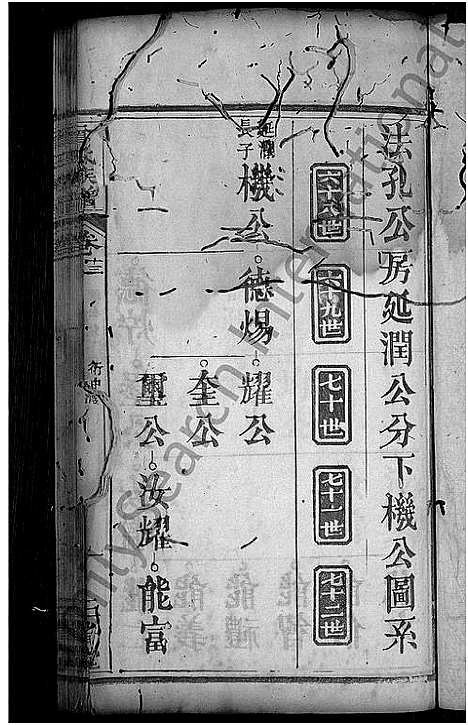 法孔公房延潤公分下機公圖系
六十八世
六十九世
七十世
七十一世
七十二世
延潤長子
機公
德煬
耀公
奎公
璽公
汝耀
能富
卷
FamilySearch International